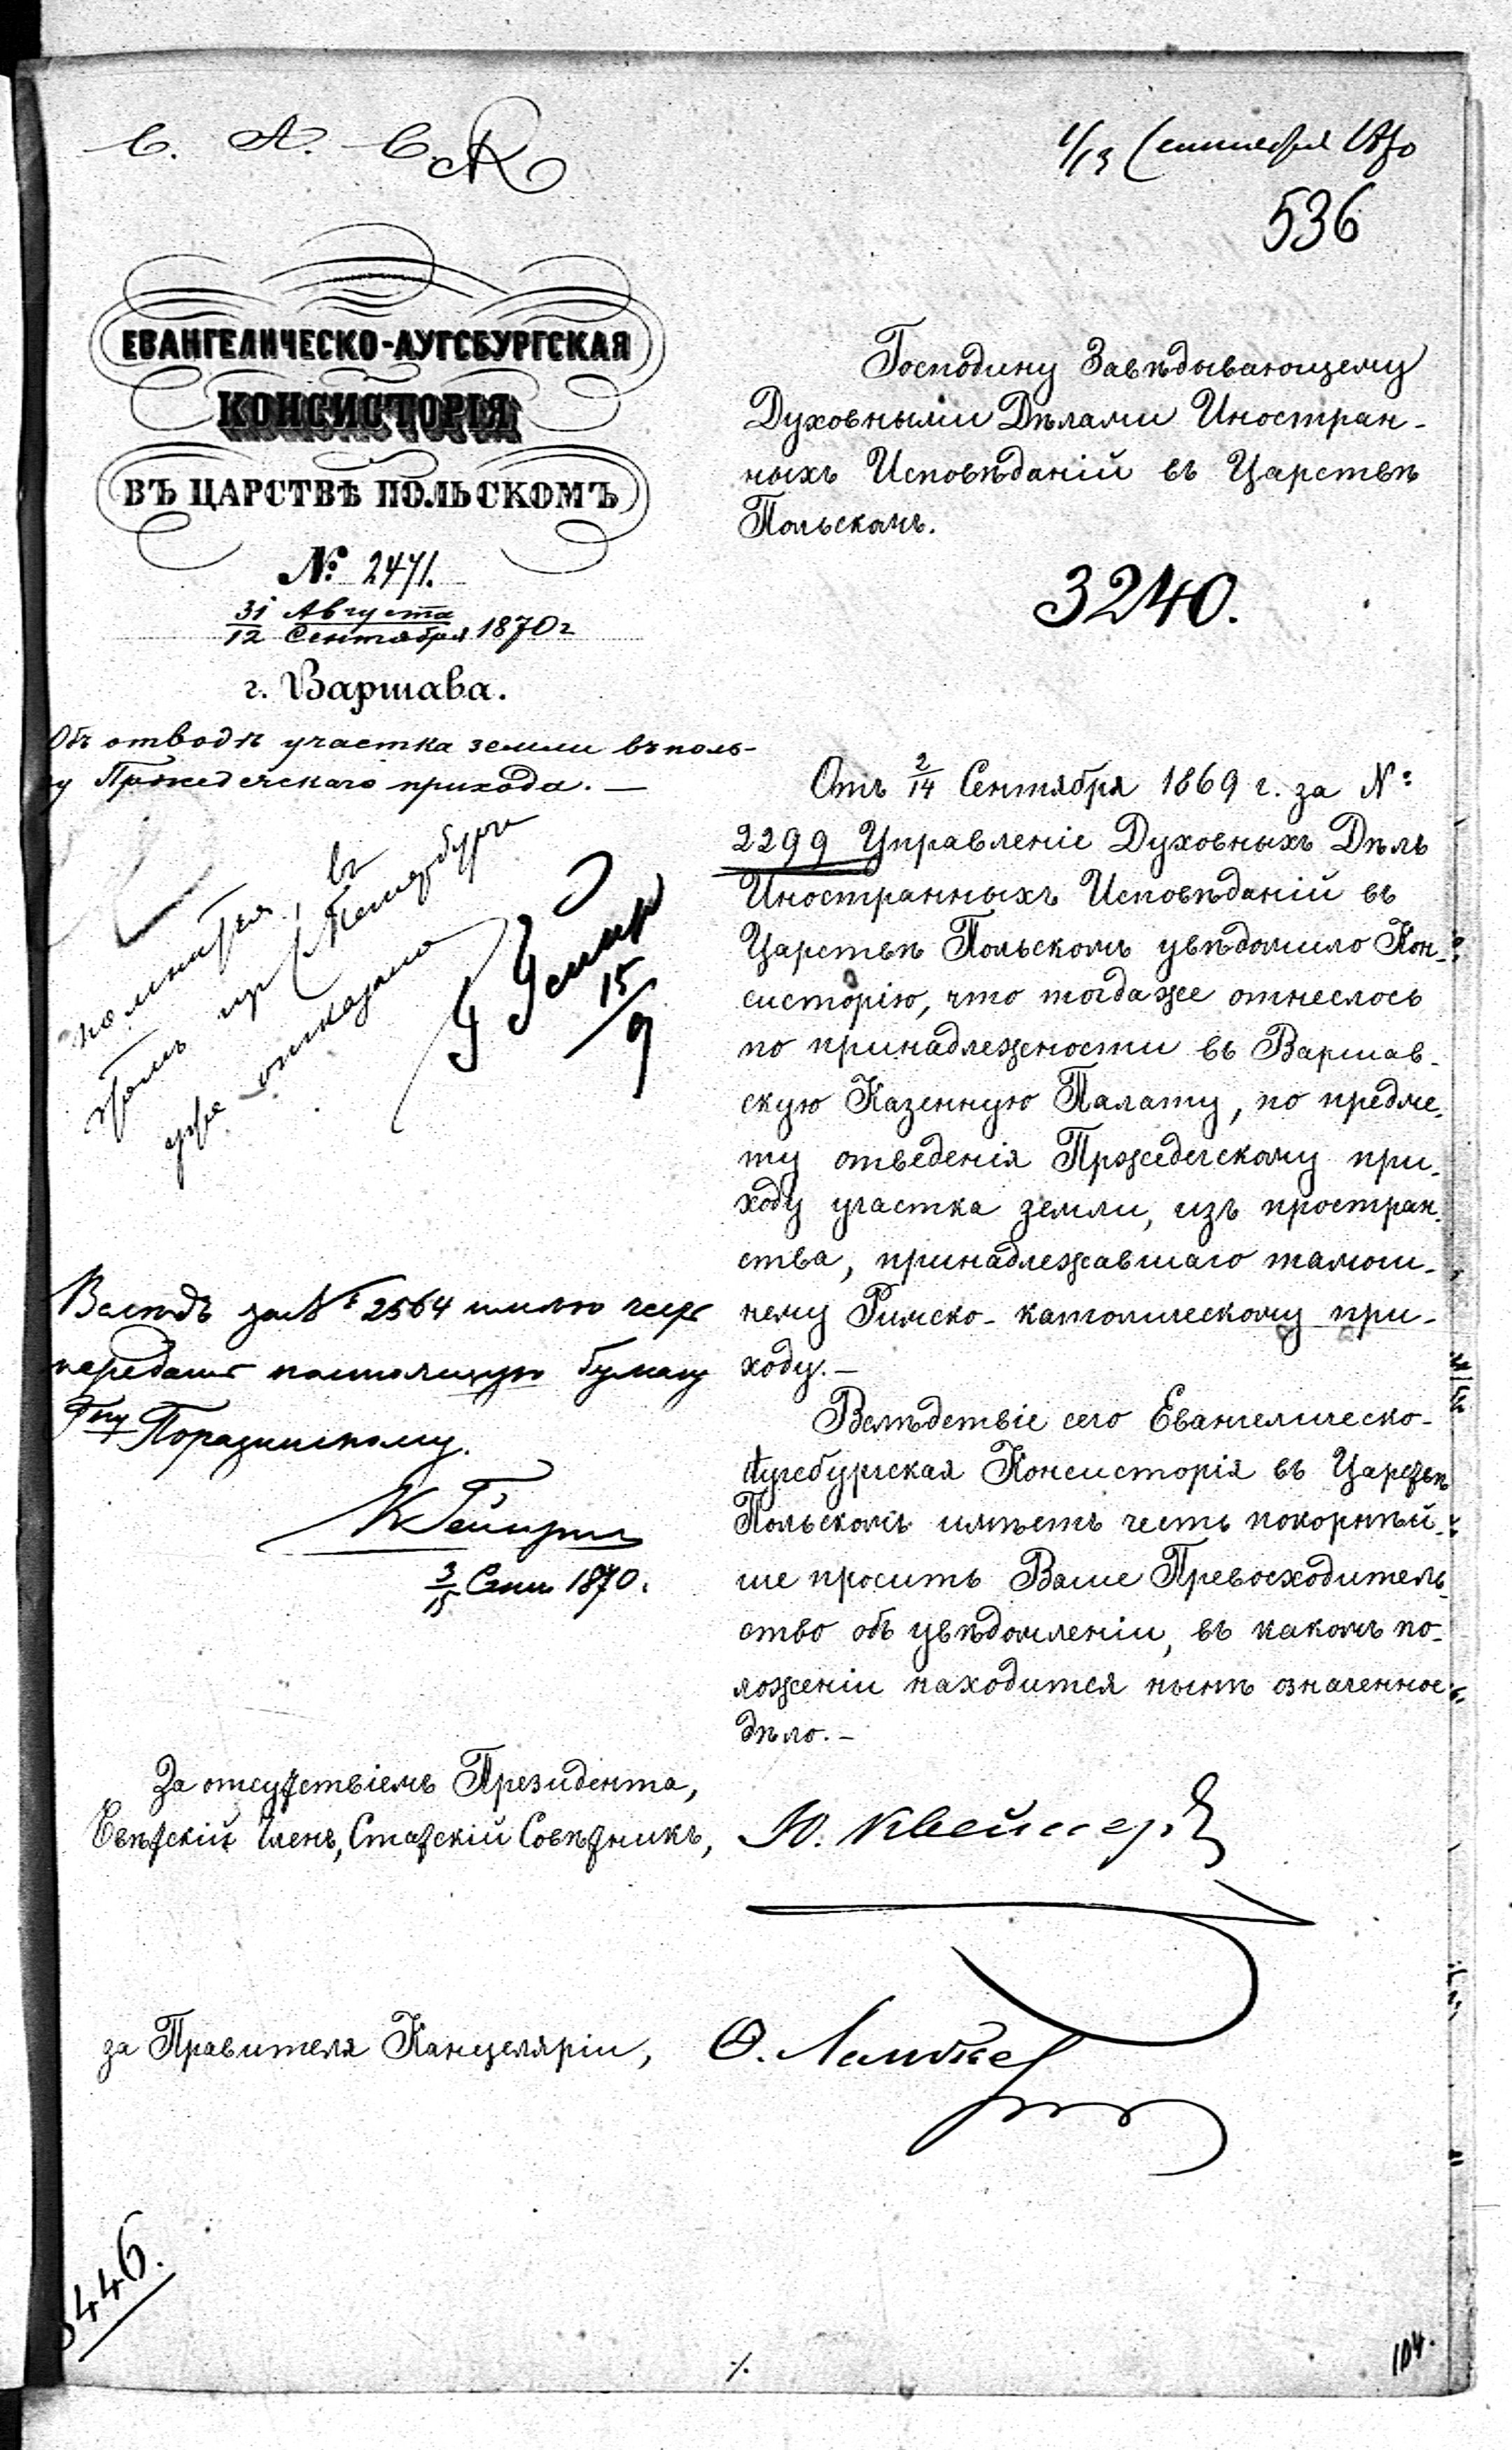 1/13 Сентября 1870
536
ЕВАНГЕЛИЧЕСКО-АУГСБУРГСКАЯ
КОНСИСТОРІЯ
ВЪ ЦАРСТВѢ ПОЛЬСКОМЪ
№ 2471.
31 Августа
12 Сентября 1870 г
г. Варшава.
Объ отводѣ участка земли въ поль-
зу Пржедечскаго прихода. —
Господину Завѣдывающему
Духовными Дѣлами Иностран-
ныхъ Исповѣданій въ Царствѣ
Польскомъ.
3240.
Отъ 2/14 Сентября 1869 г. за №
2299 Управленіе Духовныхъ Дѣлъ
Иностранныхъ Исповѣданій въ
Царствѣ Польскомъ увѣдомило Кон-
систорію, что тогда же отнеслось
по принадлежности въ Варшав-
скую Казенную Палату, по предме-
ту отведенія Пржедечскому при-
ходу участка земли, изъ простран-
ства, принадлежавшаго тамош-
нему Римско-католическому при-
ходу. —
Вслѣдствіе сего Евангелическо-
Аугсбургская Консисторія въ Царствѣ
Польскомъ имѣетъ честь покорнѣй-
ше просить Ваше Превосходитель-
ство объ увѣдомленіи, въ какомъ по-
ложеніи находится нынѣ означенное
дѣло. —
въ
уже отказано
15/9
за № 2564 имѣю честь
настоящую бумагу
Гну
3/15 Сент 1870.
За отсутствіемъ Президента,
Свѣтскій Членъ, Статскій Совѣтникъ,
за Правителя Канцеляріи,
446.
104.